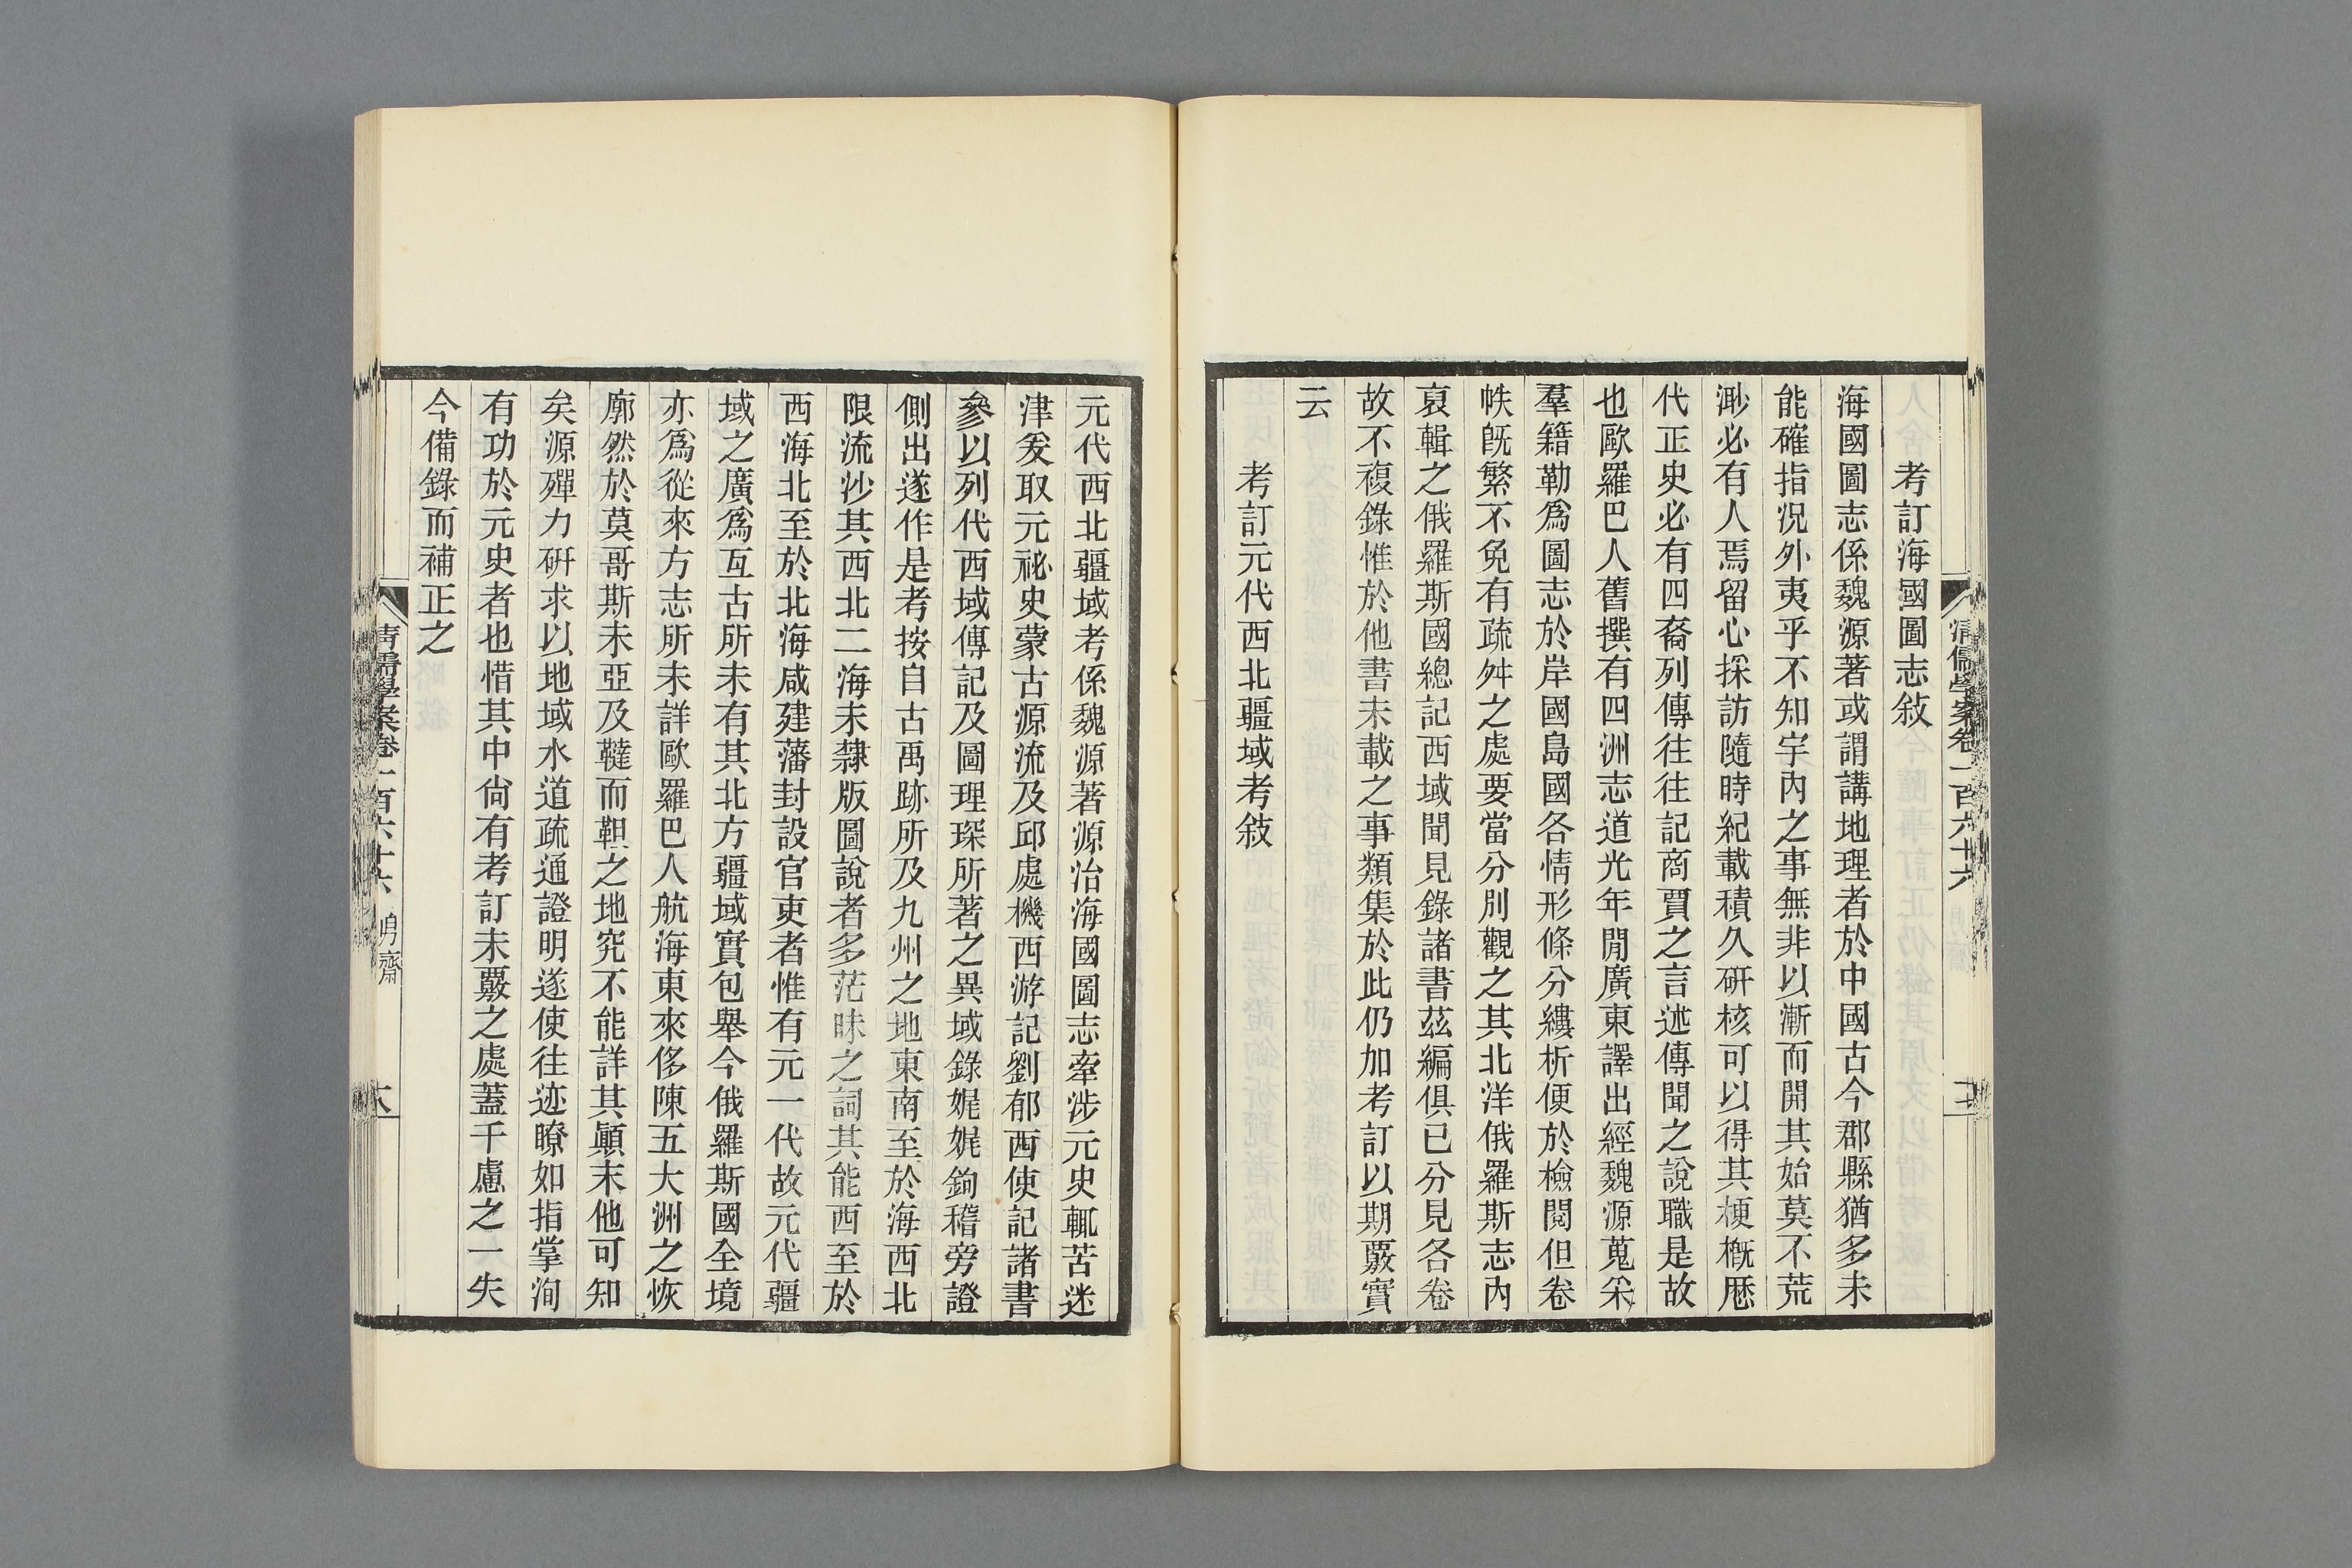 考訂海國圖志敍
海國圖志係魏源著或謂講地理者於中國古今郡縣猶多未
能確指况外夷乎不知宇內之事無非以漸而開其始莫不荒
渺必有人焉留心採訪隨時紀載積久研核可以得其梗概厯
代正史必有四裔列傳往往記商賈之言述傳聞之說職是故
也歐羅巴人舊撰有四洲志道光年閒廣東譯出經魏源蒐采
羣籍勒爲圖志於岸國島國各情形條分縷析便於檢閱但卷
帙旣繁不免有疏舛之處要當分別觀之其北洋俄羅斯志內
裒輯之俄羅斯國總記西域聞見錄諸書茲編俱已分見各卷
故不複錄惟於他書未載之事類集於此仍加考訂以期覈實
云
考訂元代西北疆域考敍
元代西北疆域考係魏源著源治海國圖志牽涉元史輒苦迷
津爰取元祕史蒙古源流及邱處機西游記劉郁西使記諸書
參以列代西域傳記及圖理琛所著之異域錄娓娓鉤稽旁證
側出遂作是考按自古禹跡所及九州之地東南至於海西北
限流沙其西北二海未隸版圖說者多茫昧之詞其能西至於
西海北至於北海咸建藩封設官吏者惟有元一代故元代疆
域之廣爲亙古所未有其北方疆域實包舉今俄羅斯國全境
亦爲從來方志所未詳歐羅巴人航海東來侈陳五大洲之恢
廓然於莫哥斯未亞及韃而靼之地究不能詳其顚末他可知
矣源殫力研求以地域水道疏通證明遂使往迹瞭如指掌洵
有功於元史者也惜其中尙有考訂未覈之處蓋千慮之一失
今備錄而補正之
清儒學案卷一百六十六 㐆齋